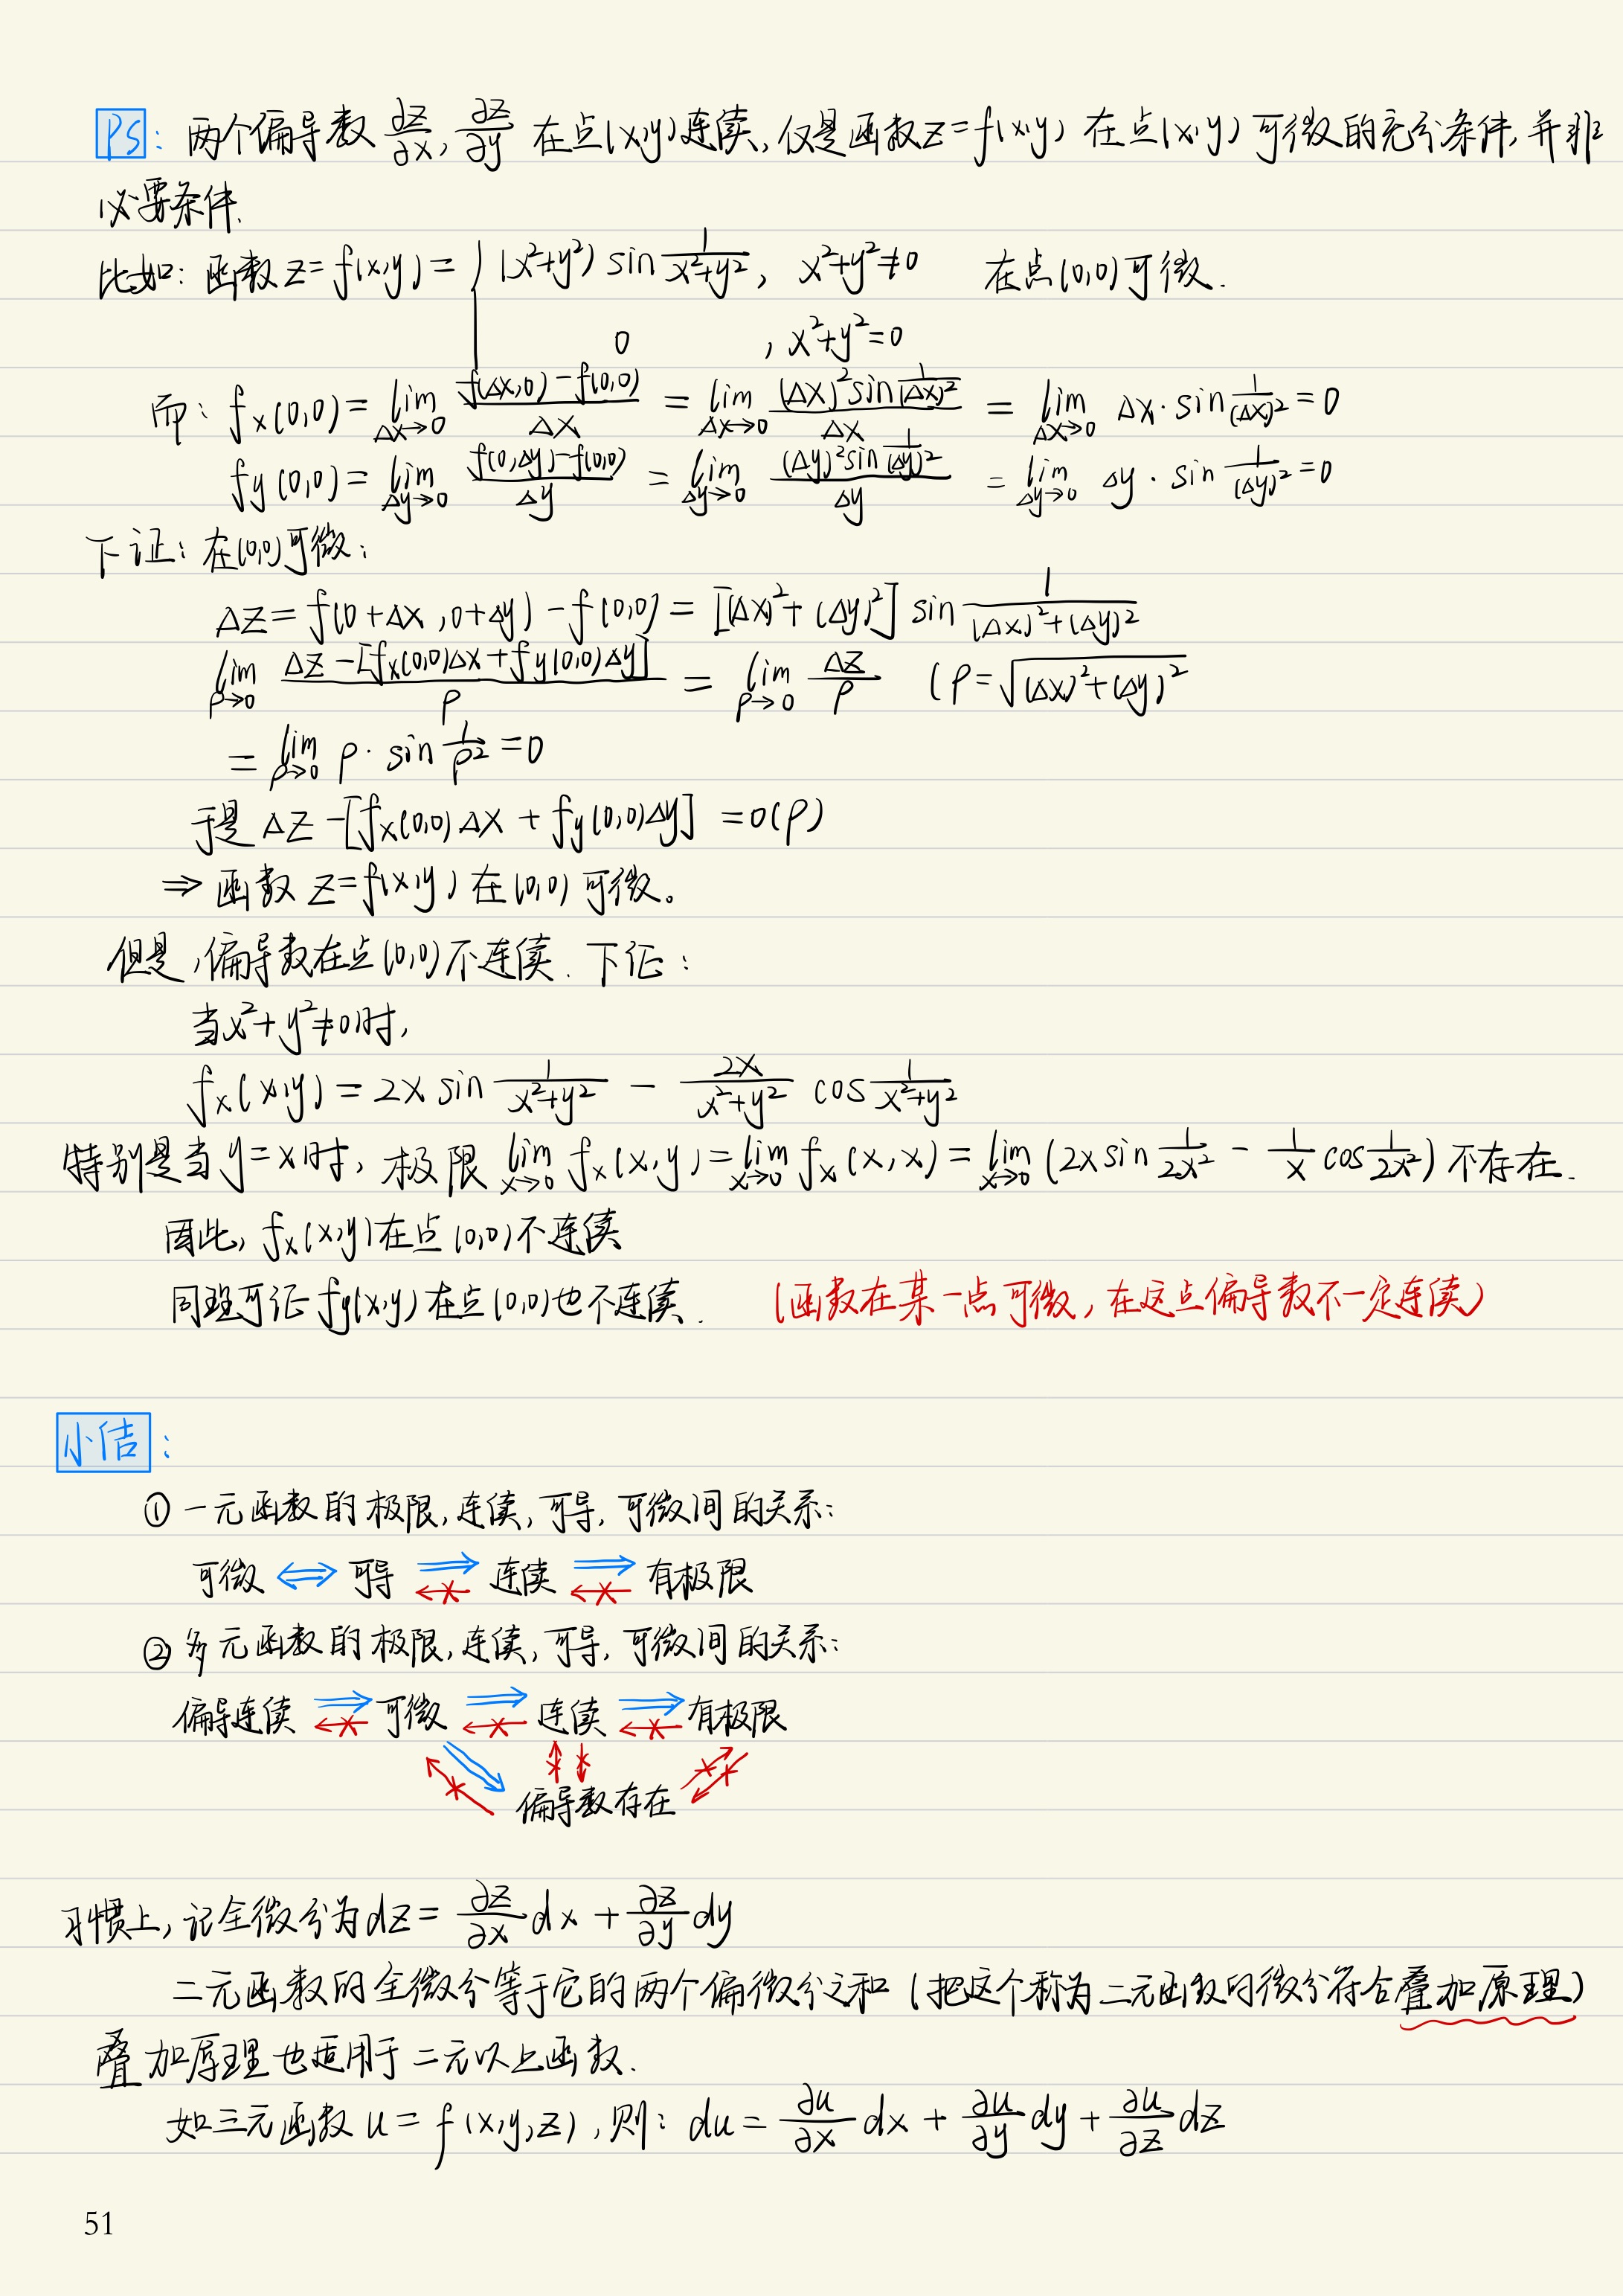 PS: 两个偏导数 ∂z/∂x, ∂z/∂y 在点(x,y)连续, 仅是函数z=f(x,y) 在点(x,y)可微的充分条件, 并非
必要条件.
比如: 函数 z=f(x,y)= { (x²+y²) sin 1/(x²+y²), x²+y²≠0 在点(0,0)可微.
0 , x²+y²=0
而: fx(0,0)= lim Δx→0 (f(Δx,0)-f(0,0))/Δx = lim Δx→0 ((Δx)² sin 1/(Δx)²)/Δx = lim Δx→0 Δx· sin 1/(Δx)² = 0
fy(0,0)= lim Δy→0 (f(0,Δy)-f(0,0))/Δy = lim Δy→0 ((Δy)² sin 1/(Δy)²)/Δy = lim Δy→0 Δy · sin 1/(Δy)² = 0
下证: 在(0,0)可微:
Δz= f(0+Δx, 0+Δy) - f(0,0) = [(Δx)²+(Δy)²] sin 1/((Δx)²+(Δy)²)
lim ρ→0 (Δz-[fx(0,0)Δx+fy(0,0)Δy])/ρ = lim ρ→0 Δz/ρ (ρ=√((Δx)²+(Δy)²)
= lim ρ→0 ρ· sin 1/ρ² =0
于是 Δz-[fx(0,0)Δx + fy(0,0)Δy] =o(ρ)
⇒ 函数 z=f(x,y)在(0,0)可微。
但是, 偏导数在点(0,0)不连续. 下证:
当x²+y²≠0时,
fx(x,y)=2x sin 1/(x²+y²) - 2x/(x²+y²) cos 1/(x²+y²)
特别是当y=x时, 极限 lim x→0 fx(x,y)= lim x→0 fx(x,x)= lim x→0 (2x sin 1/2x² - 1/x cos 1/2x²) 不存在.
因此, fx(x,y)在点(0,0)不连续
同理可证 fy(x,y)在点(0,0)也不连续. (函数在某一点可微, 在这点偏导数不一定连续)
小结:
① 一元函数的极限, 连续, 可导, 可微间的关系:
可微 ⇔ 可导 ⇒ 连续 ⇒ 有极限
② 多元函数的极限, 连续, 可导, 可微间的关系:
偏导连续 ⇒ 可微 ⇒ 连续 ⇒ 有极限
偏导数存在
习惯上, 记全微分为 dz= ∂z/∂x dx + ∂z/∂y dy
二元函数的全微分等于它的两个偏微分之和 (把这个称为二元函数的微分符合叠加原理)
叠加原理也适用于二元以上函数.
如三元函数 u=f(x,y,z), 则: du= ∂u/∂x dx + ∂u/∂y dy + ∂u/∂z dz
51